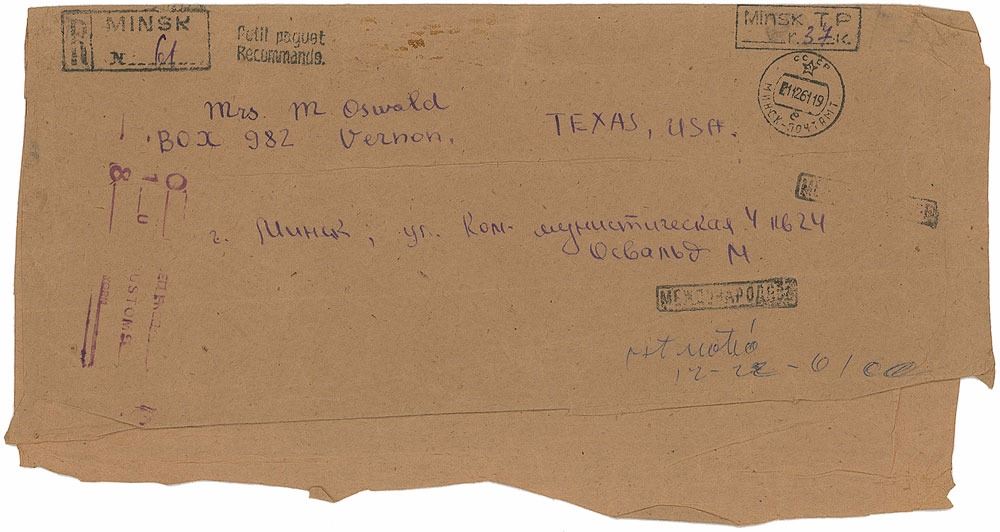 R MINSK
N 61
Petit paquet.
Recommandé.
Minsk T.P
r. 37 k.
СССР
2112 61 19
МИНСК-ПОЧТАМТ
е
Mrs. M Oswald
BOX 982 Vernon, TEXAS, USA.
г. Минск, ул. Ком-мунистическая 4 кв 24
Освальд М.
МЕЖДУНАРОДНОЕ
0
1
8
12-22-61